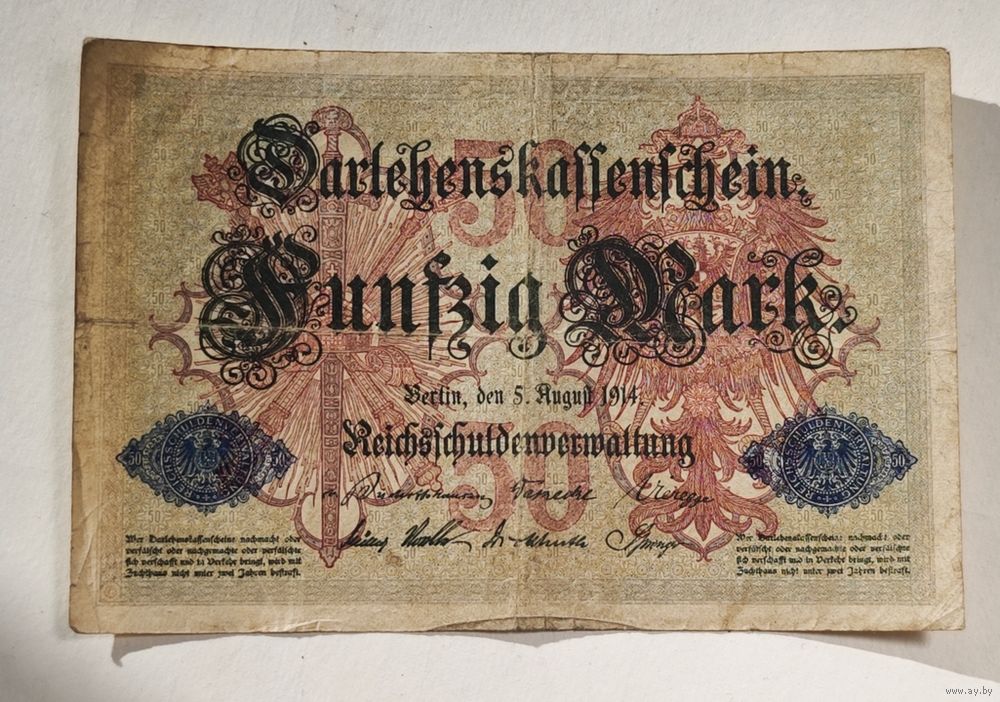 Darlehenskassenschein.
50
Fünfzig Mark.
Berlin, den 5. August 1914.
Reichsschuldenverwaltung
50
REICHSSCHULDENVERWALTUNG
50 50
REICHSSCHULDENVERWALTUNG
50 50
Wer Darlehenskassenscheine nachmacht oder
verfälscht oder nachgemachte oder verfälschte
sich verschafft und in Verkehr bringt, wird mit
Zuchthaus nicht unter zwei Jahren bestraft.
Wer Darlehenskassenscheine nachmacht oder
verfälscht oder nachgemachte oder verfälschte
sich verschafft und in Verkehr bringt, wird mit
Zuchthaus nicht unter zwei Jahren bestraft.
www.ay.by